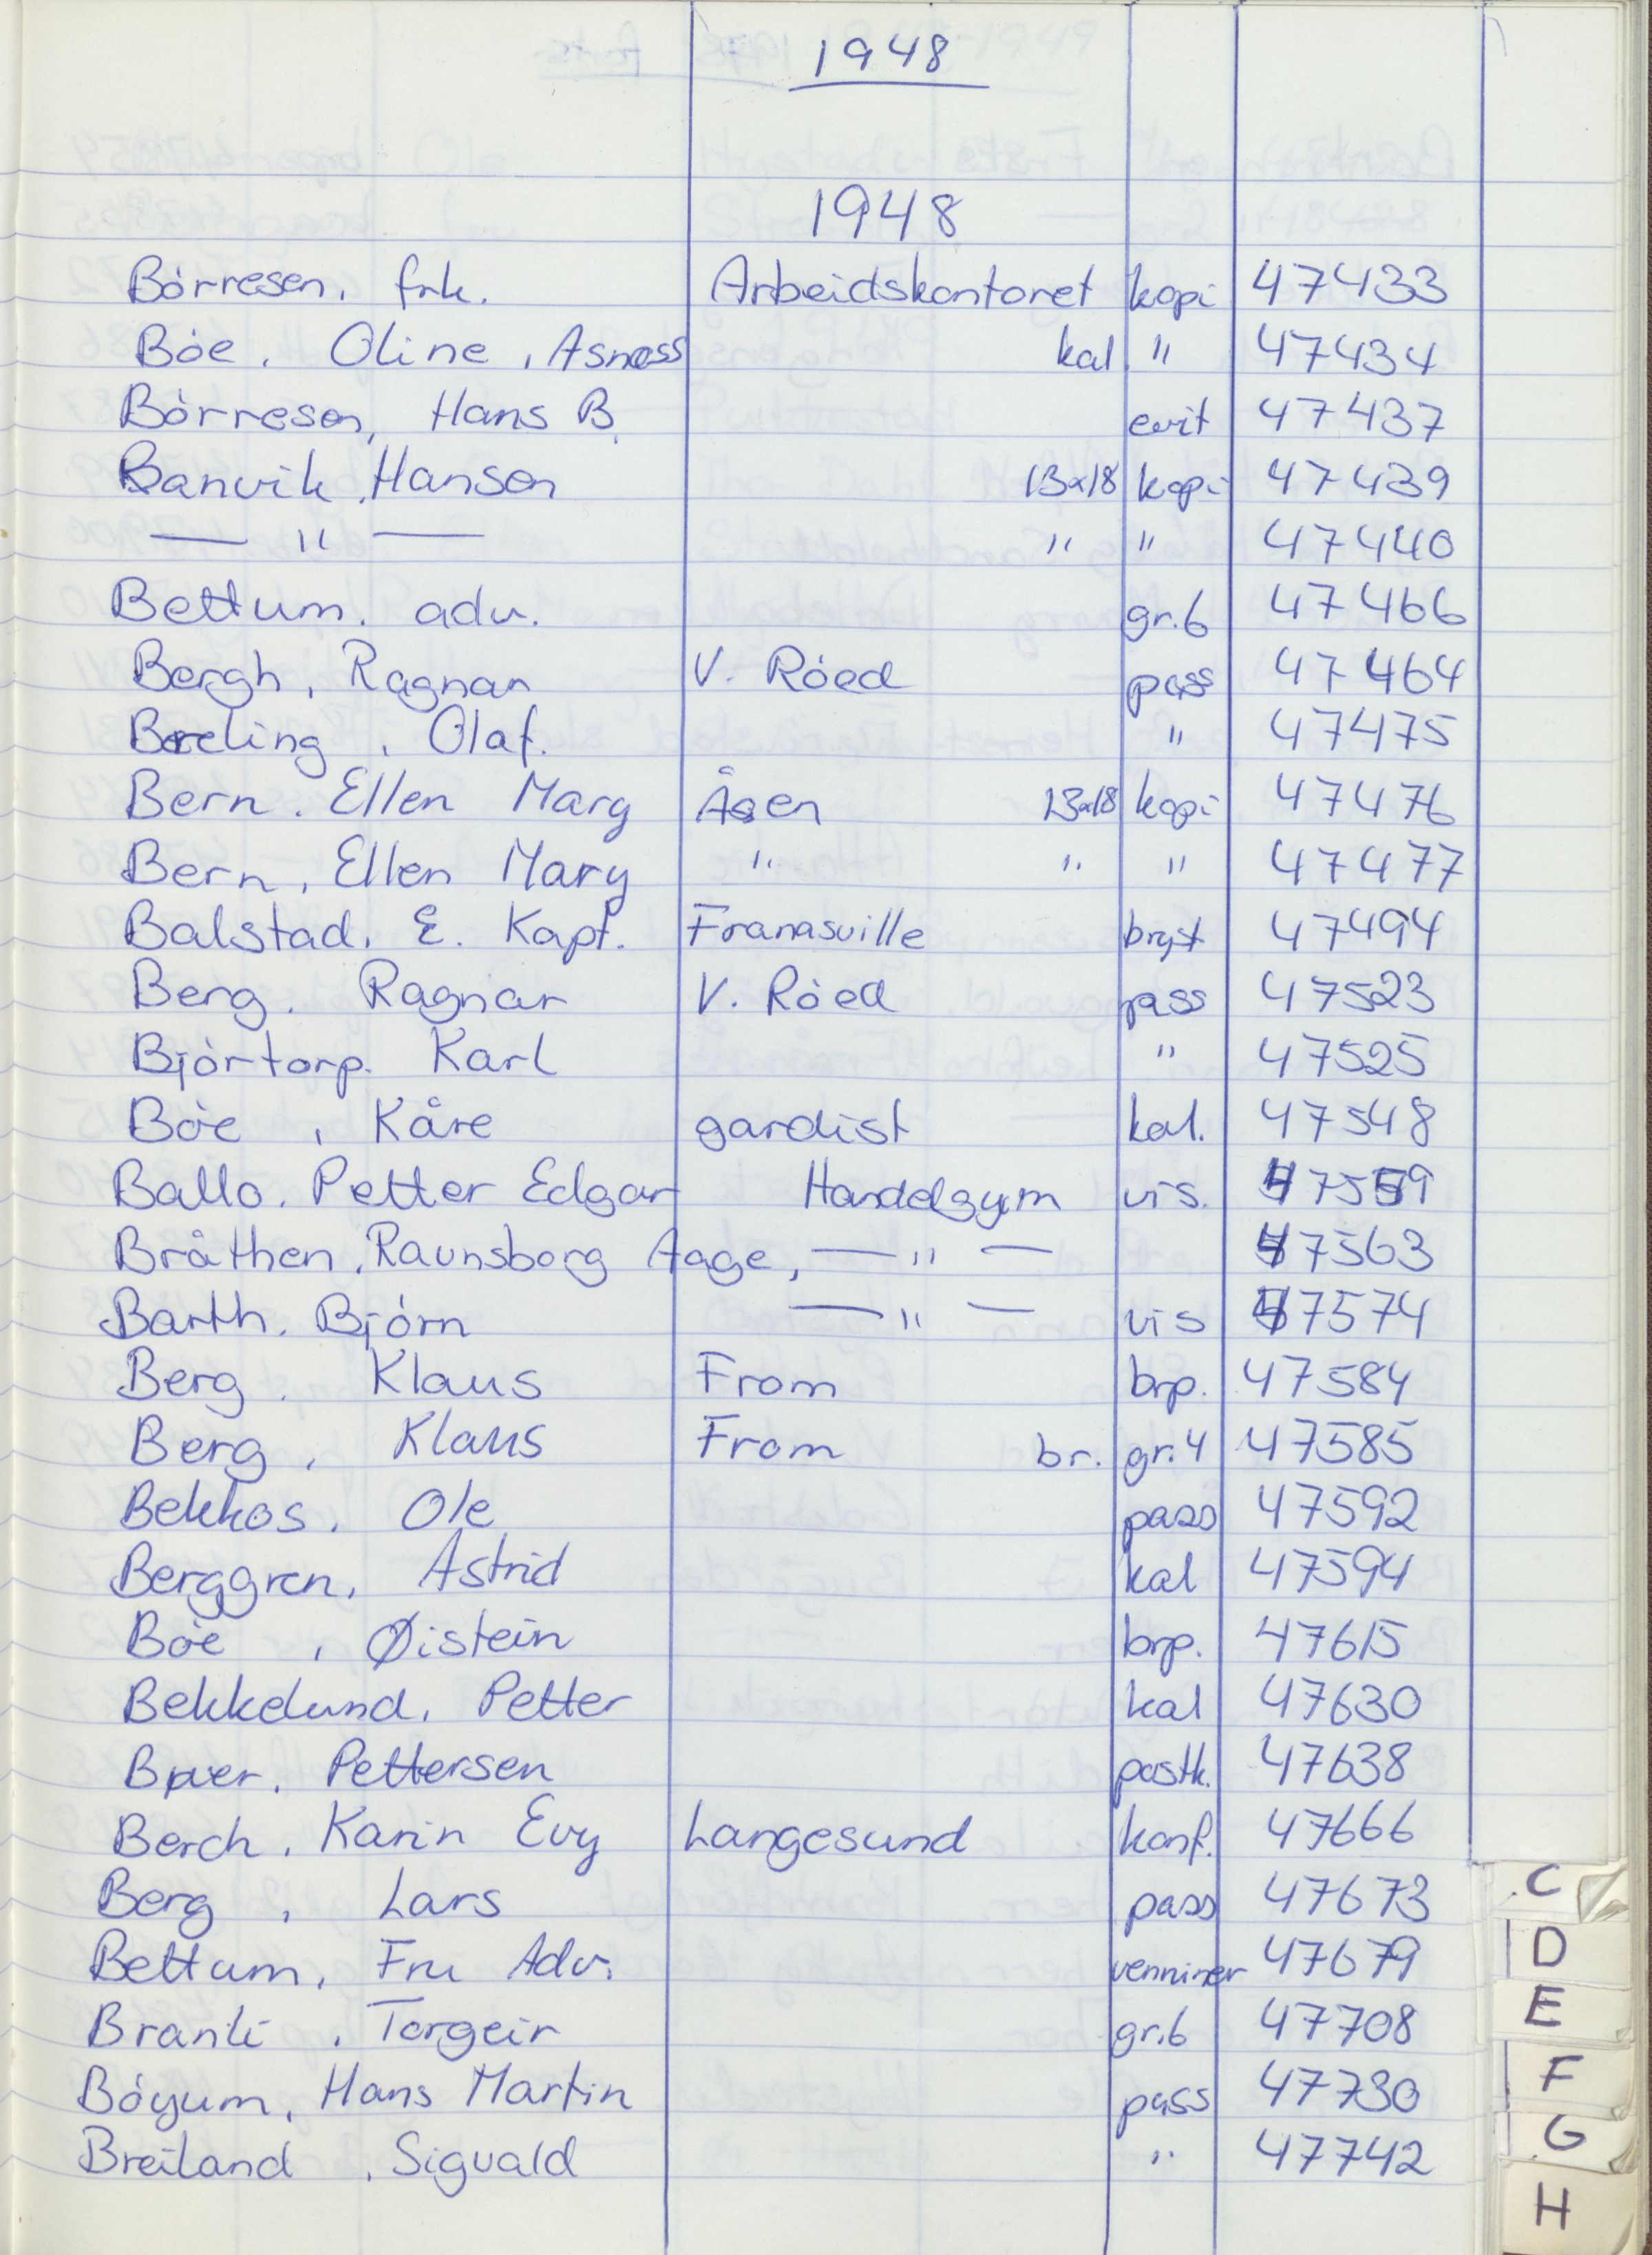 1948
1948
Börresen, frk. Arbeidskontoret kopi 47433
Böe, Oline, Asness kal " 47434
Börresen, Hans B. evit 47437
Banvik, Hanson 13x18 kopi 47439
— " — " " 47440
Bettum. adv. gr.6 47466
Bergh, Ragnar V. Röed pass 47464
Breling, Olaf. " 47475
Bern. Ellen Mary Åsen 13x18 kopi 47476
Bern, Ellen Mary " " " 47477
Balstad, E. Kapt. Franasville bryst 47494
Berg. Ragnar V. Röed pass 47523
Bjørtorp. Karl " 47525
Böe, Kåre gardist kal. 47548
Ballo. Petter Edgar Handelsgym vis. 47559
Bråthen, Raunsborg Aage, — " — 47563
Barth. Björn — " — vis 47574
Berg. Klaus From brp. 47584
Berg, Klaus From br. gr.4 47585
Bekkos. Ole pass 47592
Berggren, Astrid kal 47594
Böe, Øistein brp. 47615
Bekkelund, Petter kal 47630
Pettersen postk. 47638
Berch, Karin Evy Langesund konf. 47666
Berg, Lars pass 47673
Bettum, Fru Adv. venniner 47679
Branli, Torgeir gr.6 47708
Böyum, Hans Martin pass 47730
Breiland, Sigvald " 47742
C
D
E
F
G
H